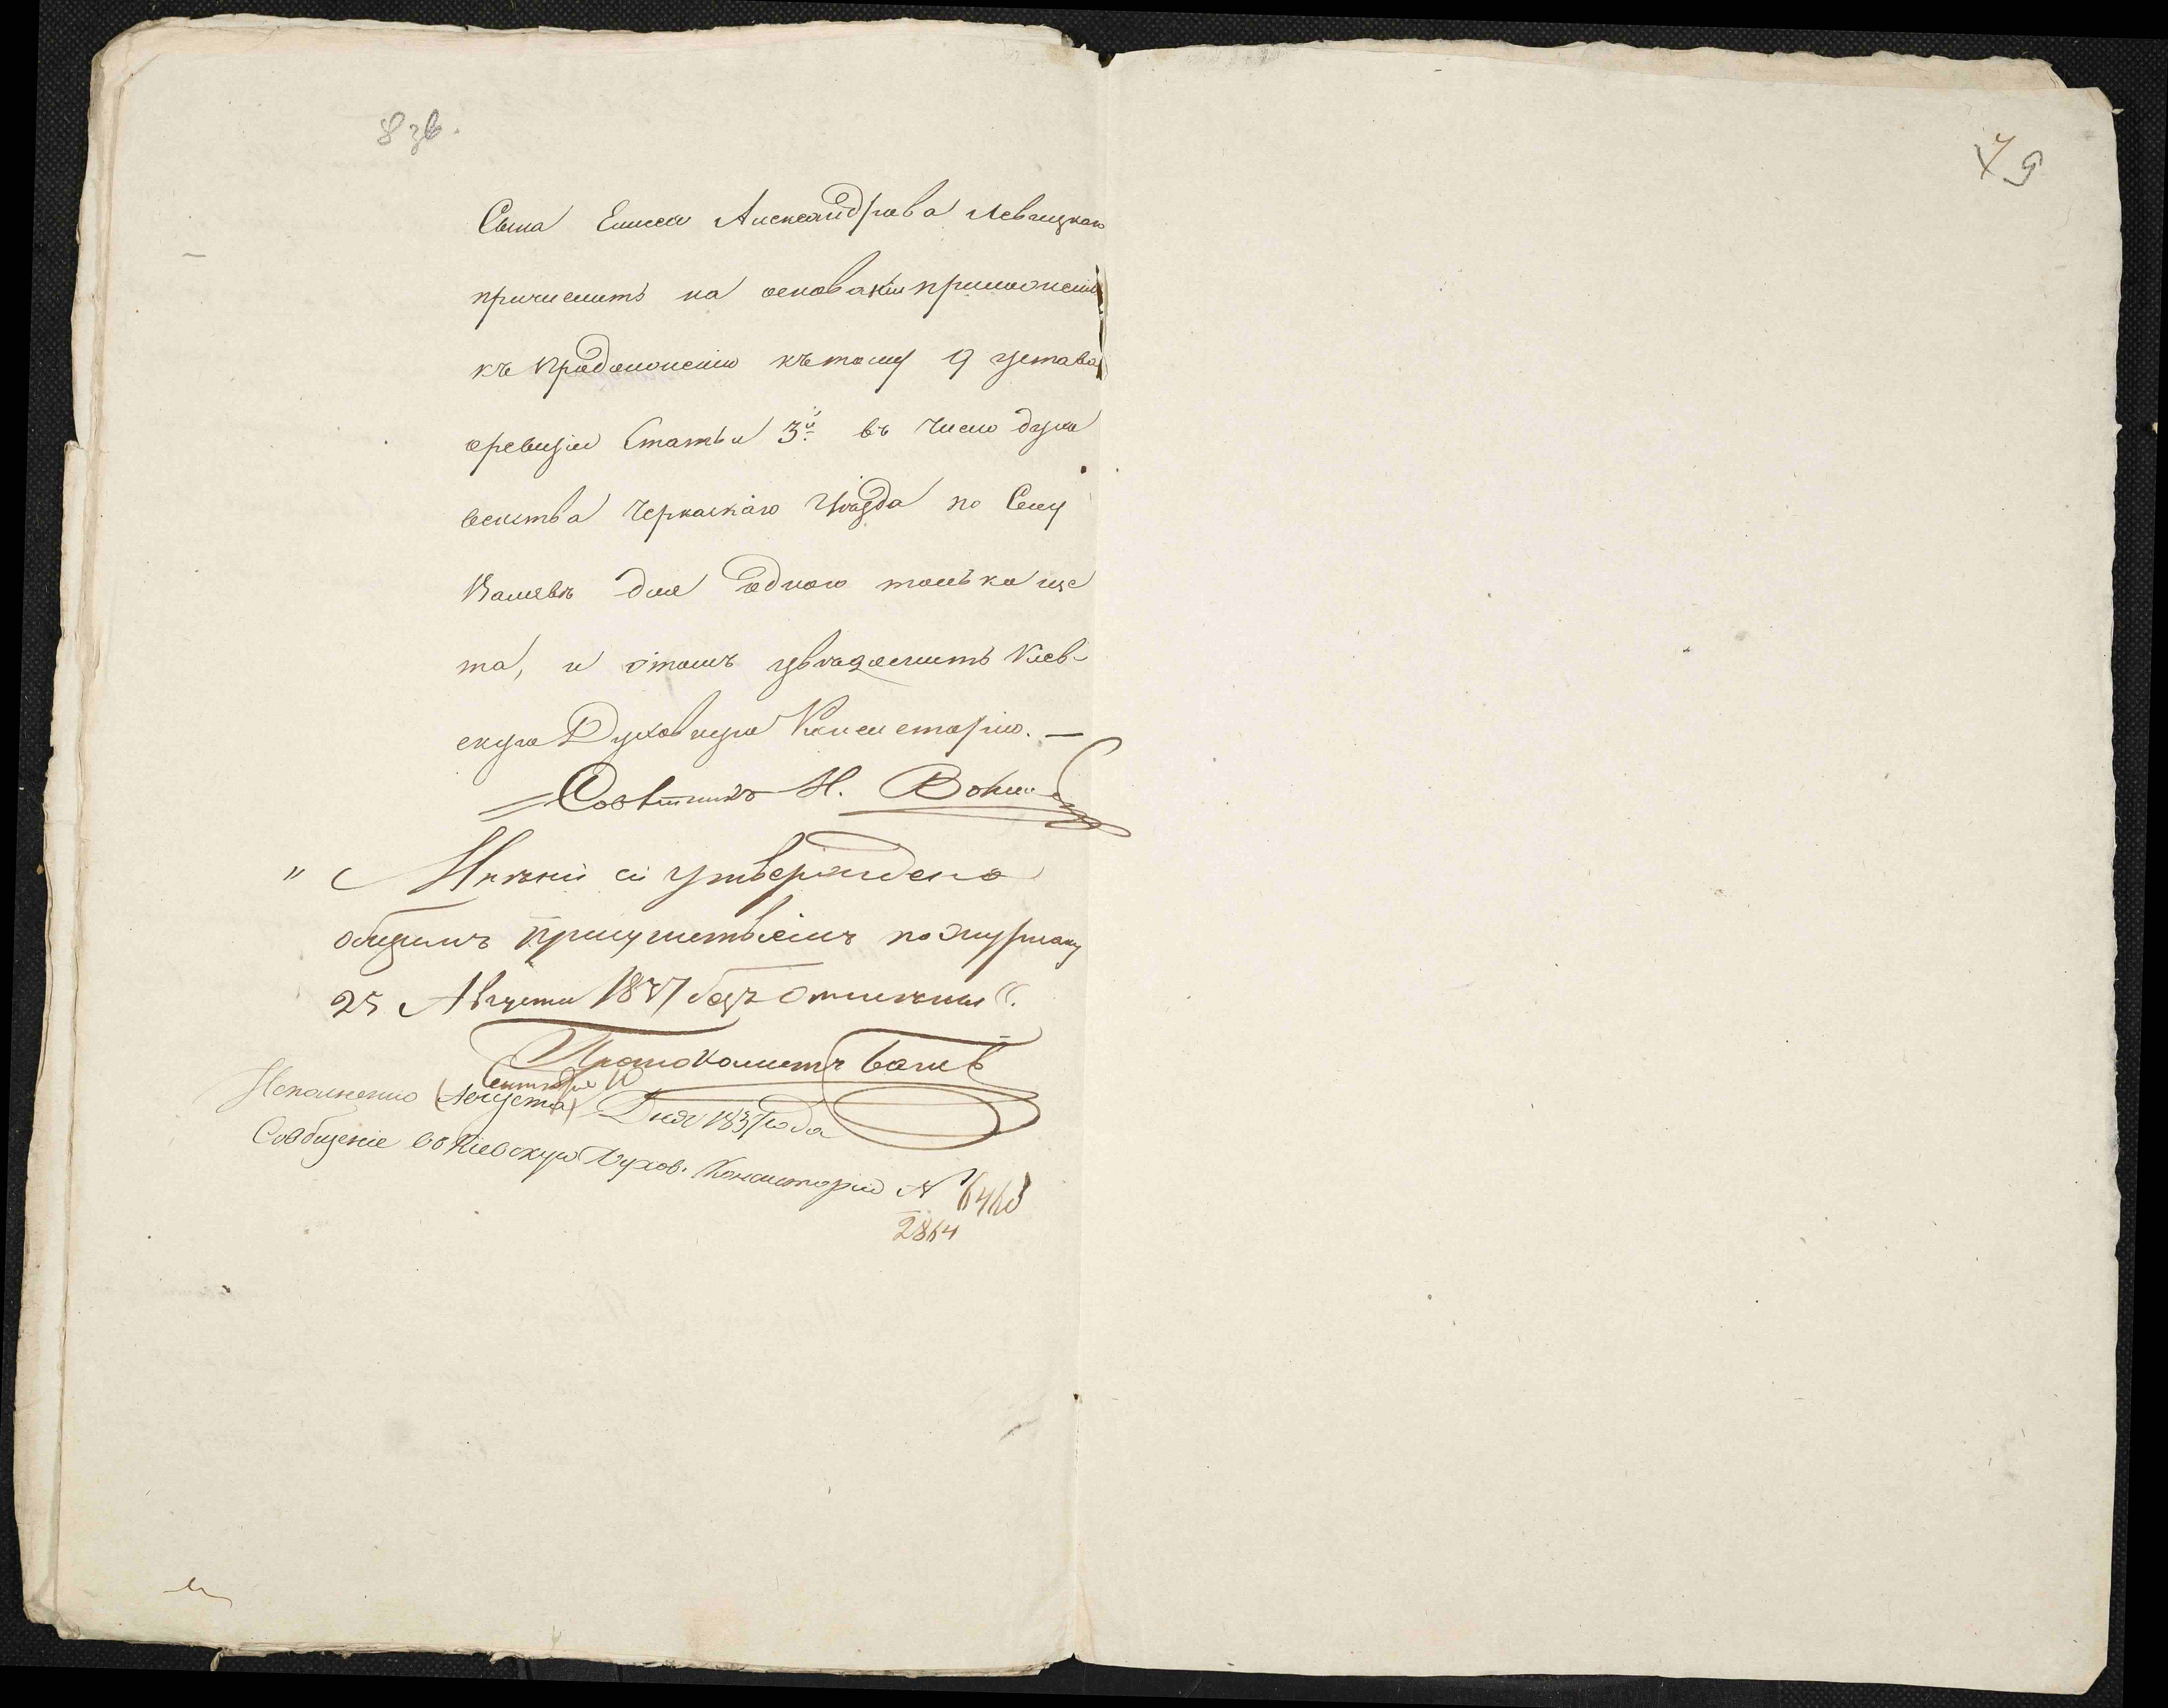 8 зв.
79
Сына Елисея Александрова Левицкаго
причислить на основаніи приложенія
къ продолженію къ тому 9 устава
о ревизіи Статьи 3й въ число духо
венства Черкаскаго уѣзда по Селу
для одного только сче
та, и о томъ увѣдомить Кіев-
скую Духовную Консисторію. —
Совѣтникъ Н.
„ Мнѣніе сіе утверждено
общимъ присутствіемъ по журналу
25 Августа 1837 безъ отмѣны“.
Протоколистъ
Сентября 10
Исполнено (Августа) Дня 1837 года
Сообщеніе въ Кіевскую Духов. Консисторію №
2864